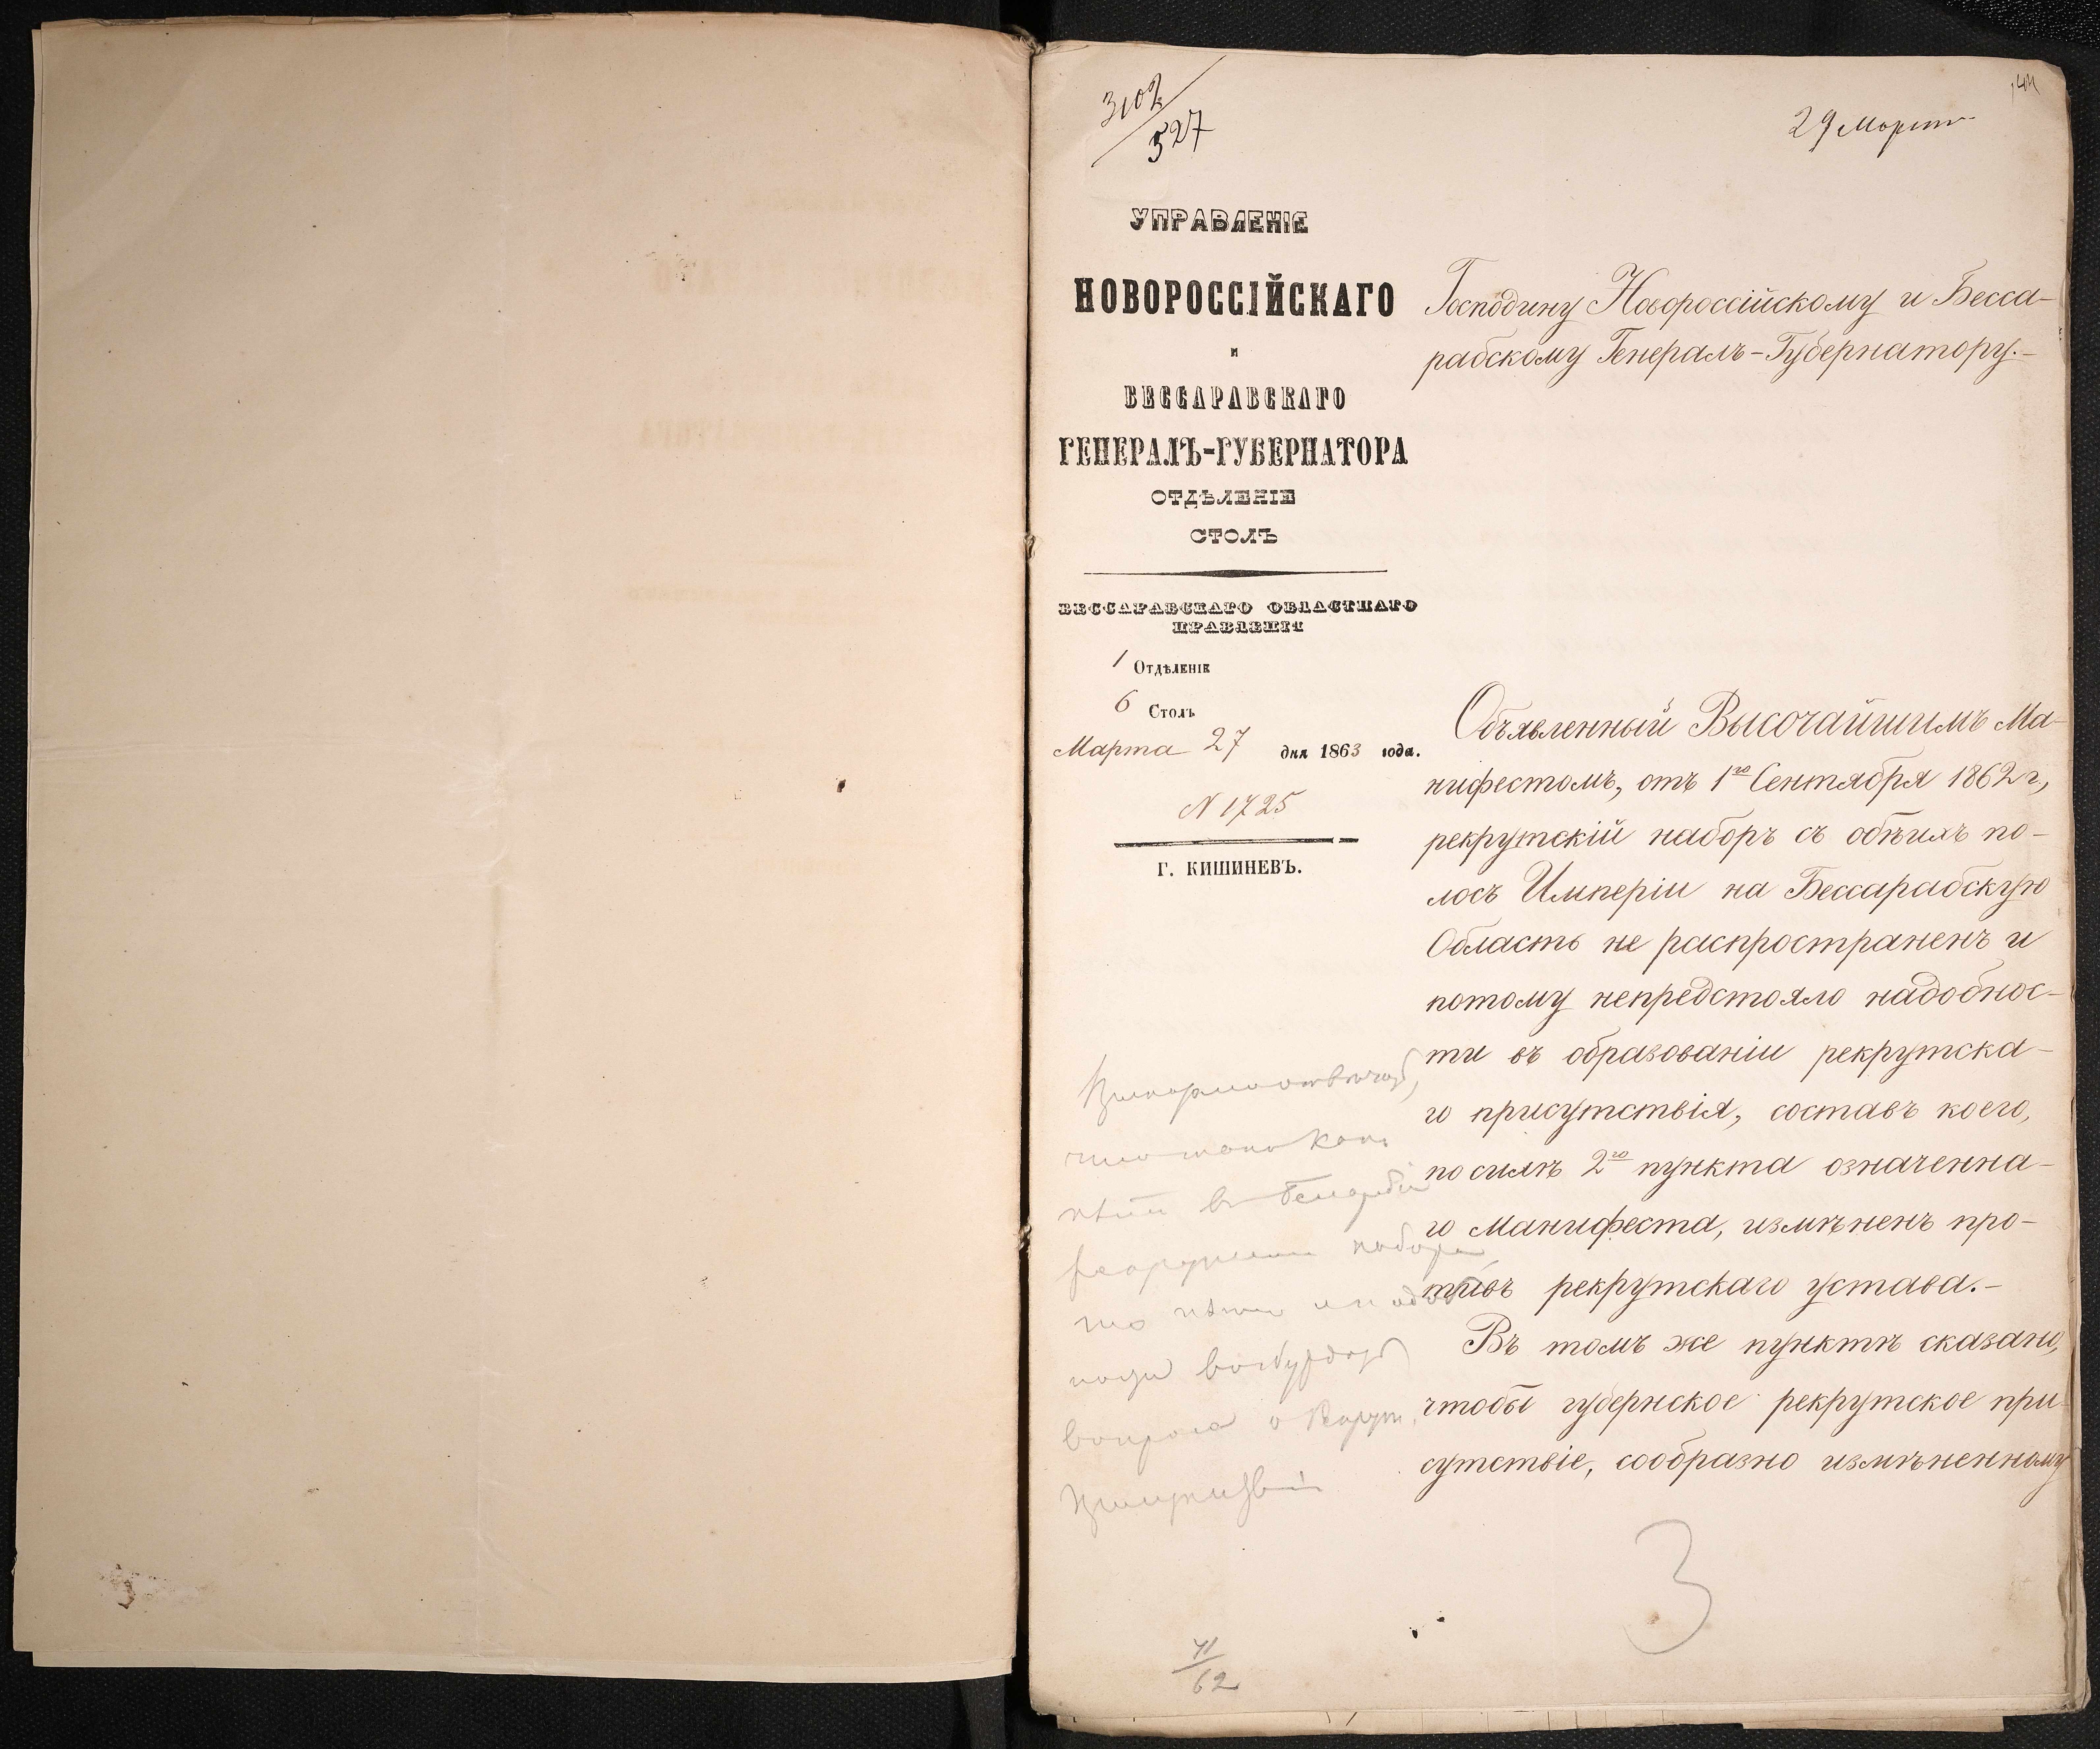 3102
527
29 Марта
144
УПРАВЛЕНІЕ
НОВОРОССІЙСКАГО
и
БЕССАРАБСКАГО
ГЕНЕРАЛЪ-ГУБЕРНАТОРА
ОТДѢЛЕНІЕ
СТОЛЪ
БЕССАРАБСКАГО ОБЛАСТНАГО
ПРАВЛЕНІЯ
1 Отдѣленіе
6 Столъ
Марта 27 дня 1863 года.
N 1725
Г. КИШИНЕВЪ.
Господину Новороссійскому и Бесса-
рабскому Генералъ-Губернатору.-
Объявленный Высочайшимъ Ма-
нифестомъ, отъ 1го Сентября 1862 г.,
рекрутскій наборъ съ обѣихъ по-
лосъ Имперіи на Бессарабскую
Область не распространенъ и
потому непредстояло надобнос-
ти въ образованіи рекрутска-
го присутствія, составъ коего,
по силѣ 2го пункта означенна-
го Манифеста, измѣненъ про-
тивъ рекрутскаго устава.-
Въ томъ же пунктѣ сказано,
чтобы губернское рекрутское при-
сутствіе, сообразно измѣненному
что такъ какъ
вопроса о
3
71
62